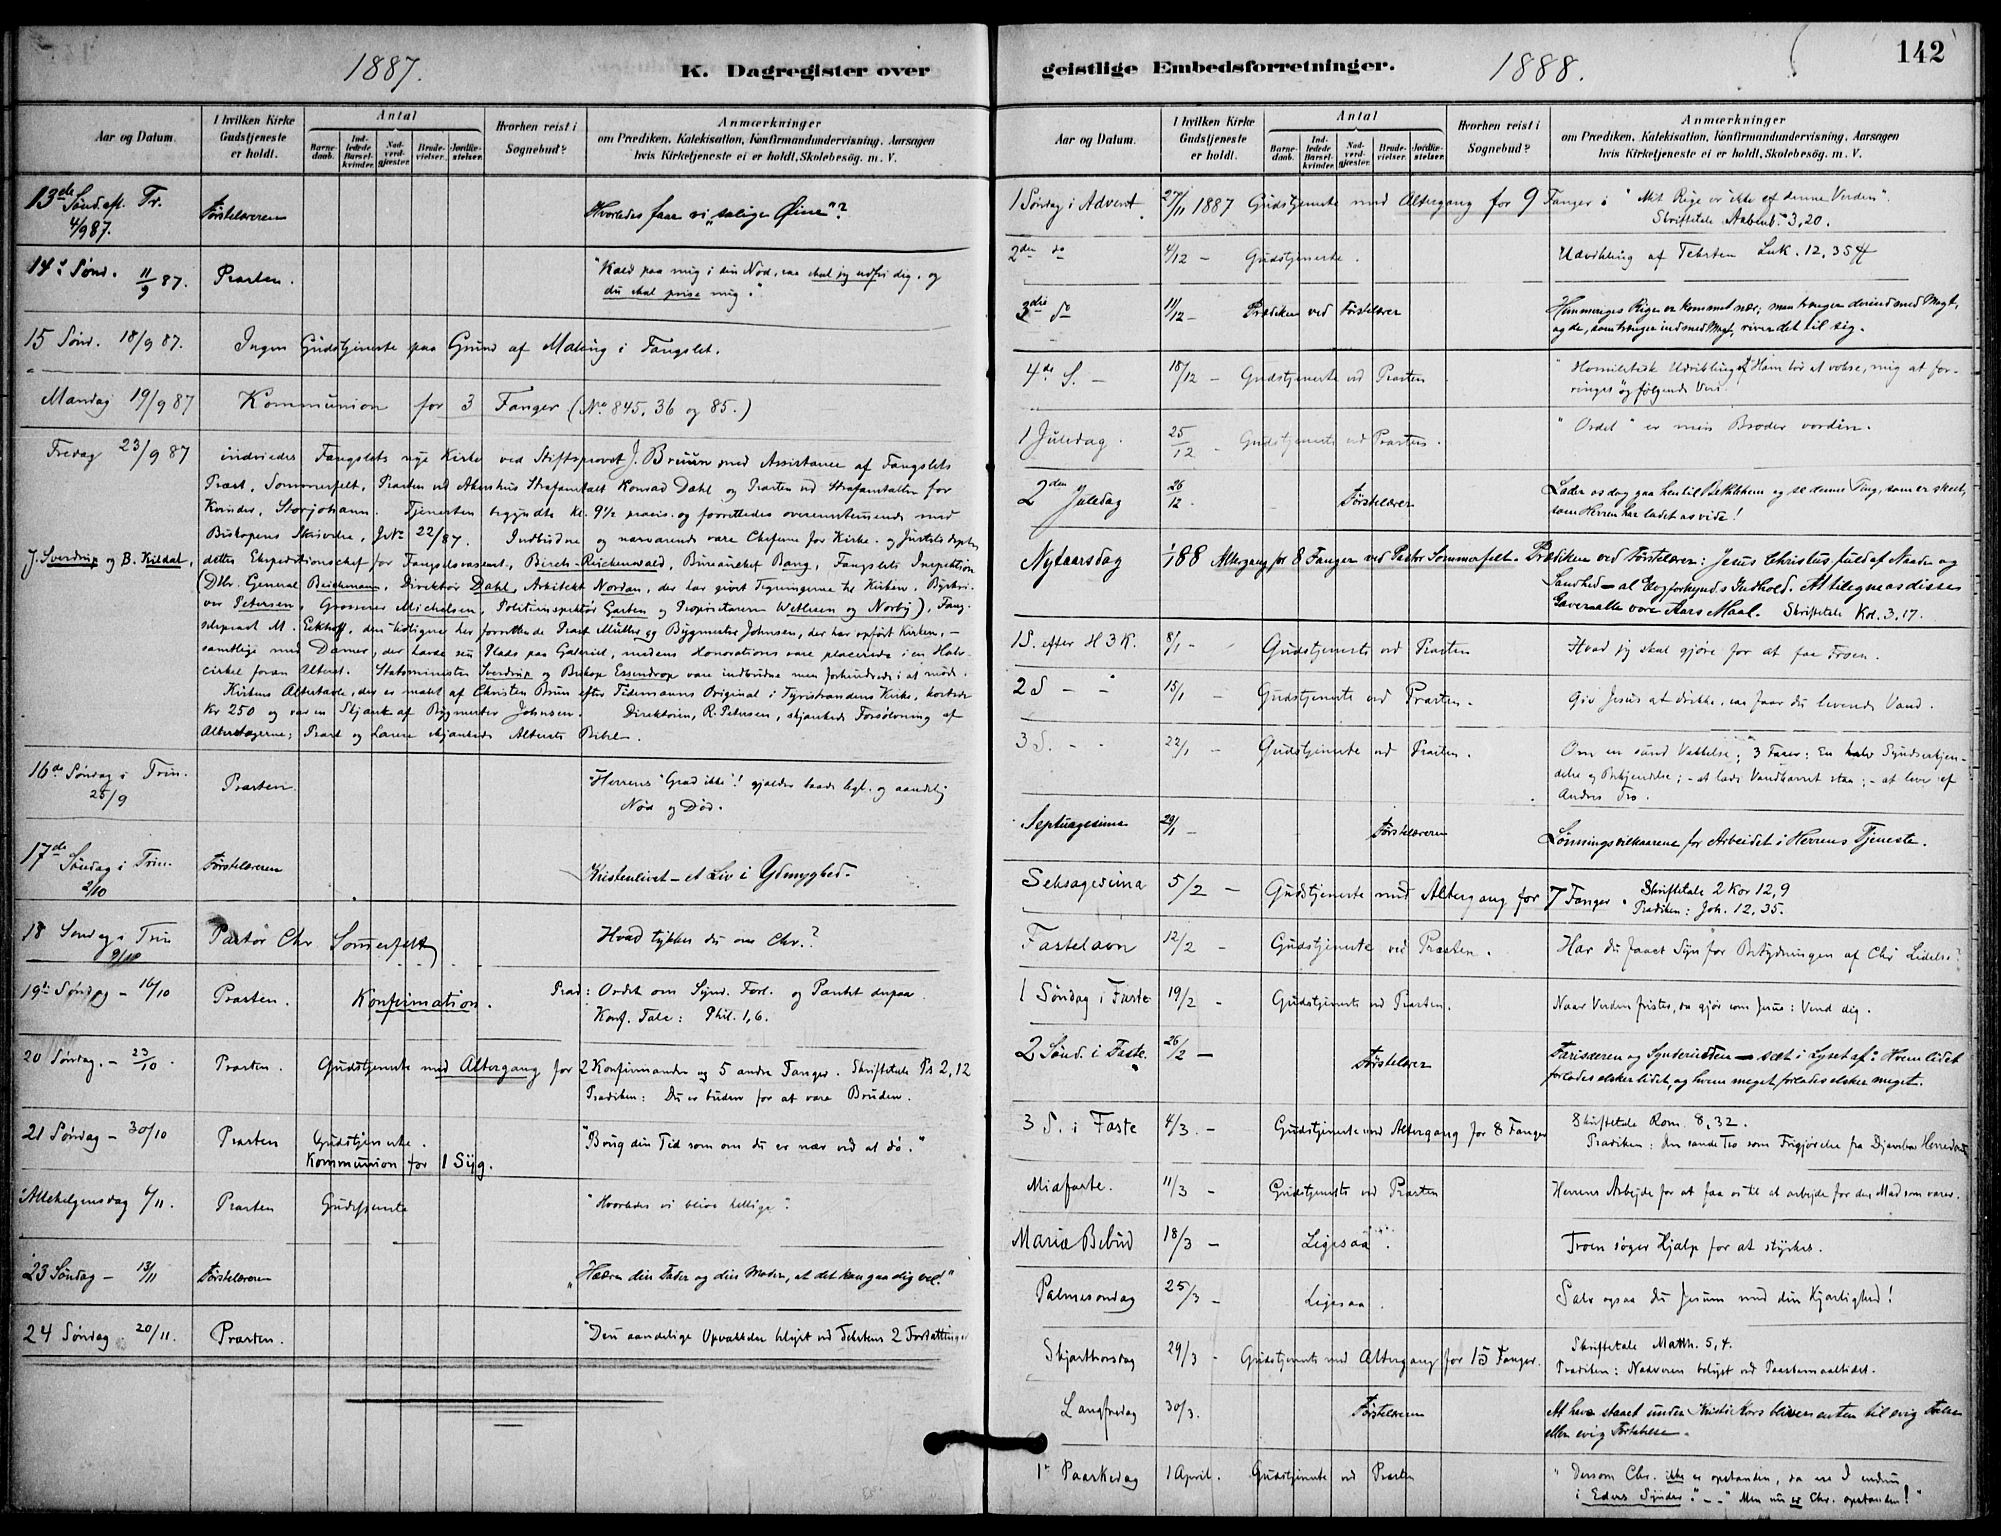 1887.
K. Dagregister over
Aar og Datum.
I hvilken Kirke Gudstjeneste er holdt.
Antal
Barne-daab.
Ind-ledede Barsel-kvinder.
Nad-verd-gjester.
Brude-vielser.
Jordfæ-stelser.
Hvorhen reist i Sognebud?
Anmærkninger
om Prædiken, Katekisation, Konfirmandundervisning, Aarsagen
hvis Kirketjeneste ei er holdt, Skolebesøg, m. V.
13de Sønd. eft. Tr. 4/9 87. Førstelæreren Hvorledes faae vi "salige Øine"?
14e Sønd. 11/9 87. Præsten. "Kald paa mig i din Nød, saa skal jeg udfri dig, og
du skal prise mig".
15 Sønd. 18/9 87. Ingen Gudstjeneste paa Grund af Maling i Fangslet.
Mandag 19/9 87 Kommunion for 3 Fanger (No 845, 36 og 85.)
Fredag 23/9 87 indviedes Fangslets nye Kirke ved Stiftsprovst J. Bruun med Assistance af Fangslets
Præst, Sommerfelt, Præsten ved Akershus Strafanstalt Konrad Dahl og Præsten ved Strafanstalten for
Kvinder, Storjohann. Tjenesten begyndte kl. 9 1/2 præcis. og forrettedes overensstemmende med
Biskopens Skrivelse, JNo 22/87. Indbudne og nærværende vare Cheferne for Kirke- og Justitsdepten
J. Sverdrup og B. Kildal, dettes Ekspeditionschef for Fangselsvæsenet, Birch-Reichenwald, Bureauchef Bang, Fangslets Inspektion
(Dhr. General Beichmann, Direktør Dahl, Arkitekt Nordan, der har givet Tegningerne til Kirken, Byskri-
ver Petersen, Grosserer Michelsen, Politiinspektør Garten og Proprietærerne Wetlesen og Norby), Fang-
selspræst M. Eckhoff, den tidligere her forrettende Præst Müller og Bygmester Johnsen, der har opført Kirken, –
samtlige med Damer, der havde sin Plads paa Galeriet, medens Honoratiores vare placerede i en Halv-
cirkel foran Alteret. Statsminister Sverdrup og Biskop Essendrop vare indbudne men forhindrede i at møde.
Kirkens Altertavle, der er malet af Christen Brun efter Tidemanns Original i Tyristrandens Kirke, kostede
Kr 250 og var en Skjænk af Bygmester Johnsen. Direktøren, R. Petersen, skjænkede Forsølvning af
Alterstagerne; Præst og Lærere skjænkede Alterets Bibel.
16de Søndag i Trin. 25/9 Præsten "Herrens "Græd ikke"! gjælder baade legl. og aandelig
Nød og Død.
17de Søndag i Trin. 2/10 Førstelæreren Kristenlivet – et Liv i Ydmyghed.
18 Søndag i Trin 9/10 Pastor Chr Sommerfelt Hvad tykkes du om Chr.?
19de Søndag – 16/10 Præsten. Konfirmation. Præd: Ordet om Synd. Forl. og Pantet derpaa.
Konf. Tale: Phil. 1,6.
20 Søndag. – 23/10. Præsten. Gudstjeneste med Altergang for 2 Konfirmander og 5 andre Fanger. Skriftetale Ps 2,12
Prædiken: Du er buden for at være Bruden.
21 Søndag – 30/10 Præsten Gudstjeneste. "Brug din Tid som om du er nær ved at dø."
Kommunion for 1 Syg.
Allehelgensdag 6/11. Præsten Gudstjeneste "Hvorledes vi blive hellige".
23 Søndag – 13/11 Førstelæreren "Hædre din Fader og din Moder, at det kan gaa dig vel!"
24 Søndag 20/11. Præsten. "Den aandelige Opvækkelse belyst ved Tekstens 2 Fortællinger
geistlige Embedsforretninger.
1888.
142
Aar og Datum.
I hvilken Kirke Gudstjeneste er holdt.
Antal
Barne-daab.
Ind-ledede Barsel-kvinder.
Nad-verd-gjester.
Brude-vielser.
Jordfæ-stelser.
Hvorhen reist i Sognebud?
Anmærkninger
om Prædiken, Katekisation, Konfirmandundervisning, Aarsagen
hvis Kirketjeneste ei er holdt, Skolebesøg, m. V.
1 Søndag i Advent. 27/11 1887 Gudstjeneste med Altergang for 9 Fanger: "Mit Rige er ikke af denne Verden".
Skriftetale Aabenb. 3,20.
2den do 4/12 – Gudstjeneste. Udvikling af Teksten Luk. 12,35 ff
3die do 11/12 – Prædiken ved Førstelærer Himmeriges Rige er kommet nær; man trænger derind med Magt,
og de, som trænger ind med Magt, river det til sig.
4de S. – 18/12 – Gudstjeneste ved Præsten "Homiletisk Udvikling af Ham bør at vokse, mig at for-
ringes" og følgende Vers.
1 Juledag. 25/12 – Gudstjeneste ved Præsten. "Ordet" er min Broder vorden.
2den Juledag 26/12. Førstelærer Lader os dog gaa hen til Bethlehem og se denne Ting, som er skeet,
som Herren har ladet os vide!
Nytaarsdag 1/1 88 Altergang for 8 Fanger ved Pastor Sommerfelt. Prædiken ved Førstelærer: Jesus Christus, fuld af Naade og
Sandhed – al Evgforkynd.s Indhold. At tilegnes disse
Gaver alle vore Aars Maal. Skriftetale Kol. 3,17.
1 S. efter H 3 K. 8/1 – Gudstjeneste ved Præsten Hvad jeg skal gjøre for at faa Troen.
2 S – " 15/1 – Gudstjeneste ved Præsten. Giv Jesus at drikke, saa faar du levende Vand.
3 S. – " 22/1 – Gudstjeneste ved Præsten. Om en sund Vækkelse; 3 Farer: En halv Syndserkjen-
delse og Bekjendelse; – at lade Vandkarret staa; – at leve af
Andres Tro.
Septuagesima 29/1 – Førstelæreren Lønningsvilkaarene for Arbeidet i Herrens Tjeneste.
Seksagesima 5/2 – Gudstjeneste med Altergang for 7 Fanger. Skriftetale 2 Kor 12,9
Prædiken: Joh. 12,35.
Fastelavn 12/2 – Gudstjeneste ved Præsten. Har du faaet Syn for Betydningen af Chr Lidelse?
1 Søndag i Faste 19/2 – Gudstjeneste ved Præsten. Naar Verden frister, da gjør som Jesus: Vend dig.
2 Sønd. i Faste. 26/2 – Førstelærer Farisæeren og Synderinden – sæt i Lyset af: Hvem lidet
forlades elsker lidet, og hvem meget forlades elsker meget.
3 S. i Faste 4/3. – Gudstjeneste med Altergang for 8 Fanger Skriftetale Rom. 8,32.
Prædiken: Den sande Tro som Frigjørelse fra Djævelens Herredømme
Midfaste. 11/3 – Gudstjeneste ved Præsten Herrens Arbejde for at faa os til at arbejde for den Mad som varer.
Mariæ Bebud 18/3 – Ligesaa. Troen søger Hjælp for at styrkes.
Palmesondag 25/3 – Ligesaa. Salv ogsaa du Jesum med din Kjærlighed!
Skjærthorsdag 29/3 – Gudstjeneste med Altergang for 15 Fanger. Skriftetale Matth. 5,4.
Prædiken: Nadveren belyst ved Paaskemaaltidet.
Langfredag 30/3. Førstelæreren At have staaet under Kristi Kors bliver enten til evig Frelse
eller evig Fortabelse.
1e Paaskedag 1 April. Gudstjeneste ved Præsten "Dersom Chr. ikke er opstanden, da ere I endnu
i Eders Synder." – – "Men nu er Chr. opstanden!"